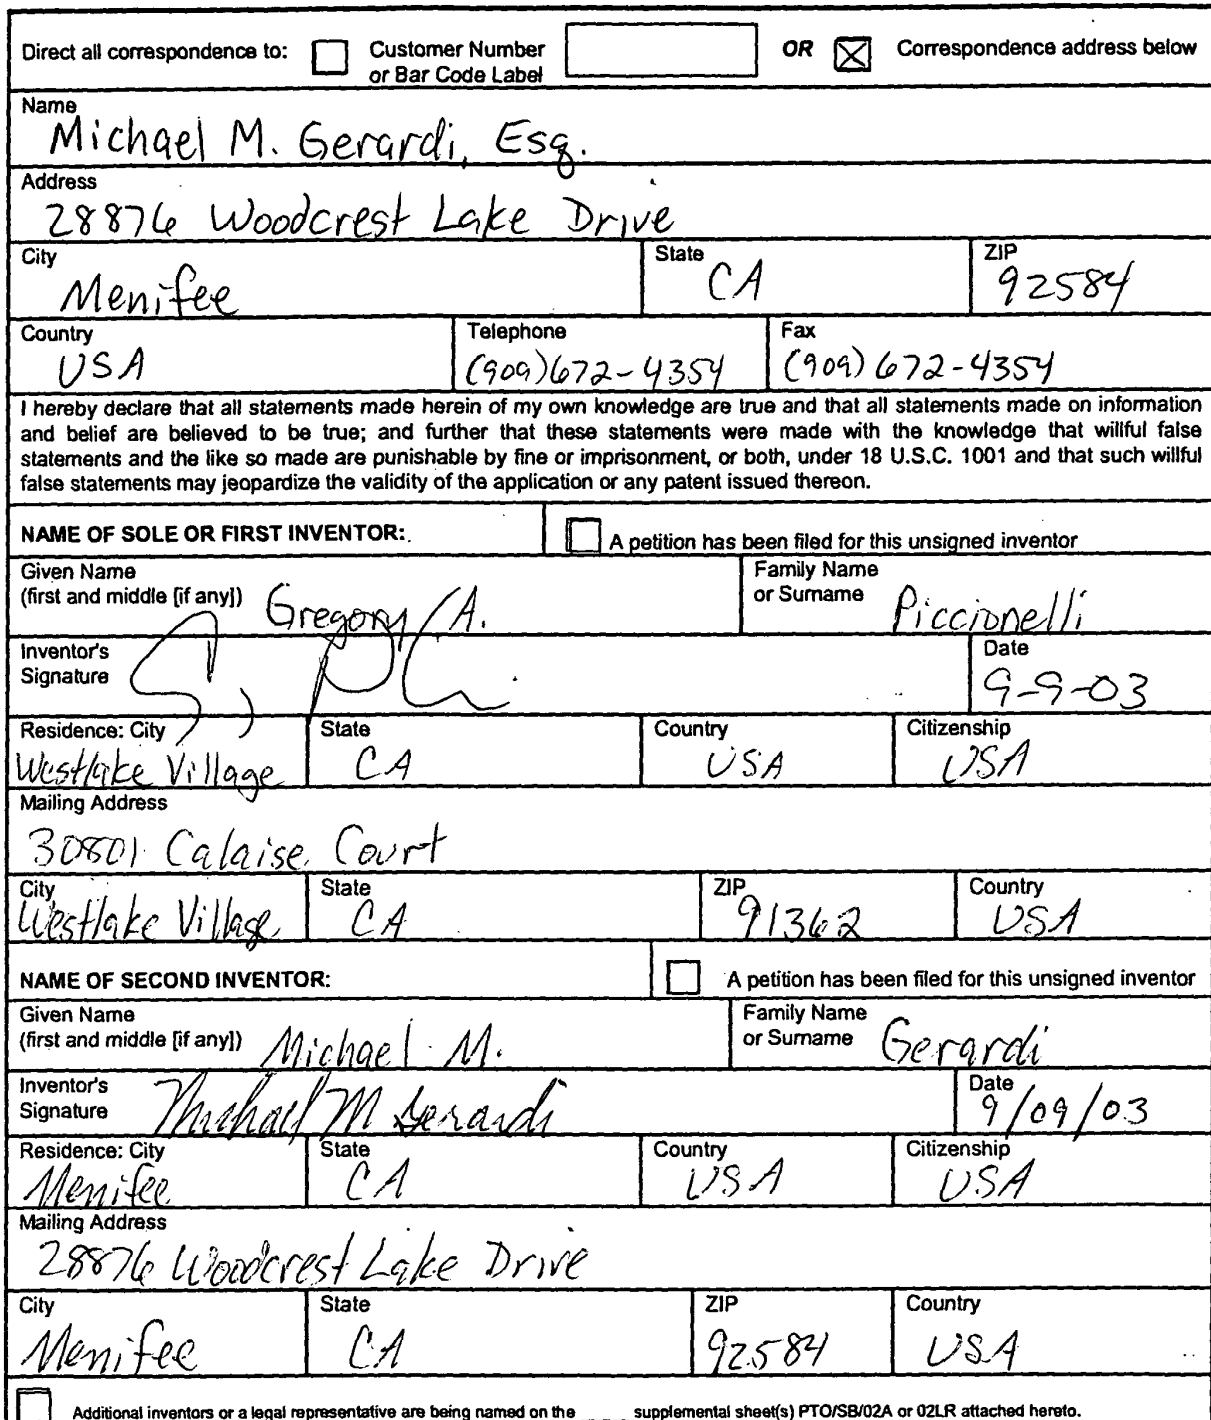 Direct all correspondence to: Customer Number or Bar Code Label OR Correspondence address below
Name
Michael M. Gerardi, Esq.
Address
28876 Woodcrest Lake Drive
City State ZIP
Menifee CA 92584
Country Telephone Fax
USA (909)672-4354 (909)672-4354
I hereby declare that all statements made herein of my own knowledge are true and that all statements made on information
and belief are believed to be true; and further that these statements were made with the knowledge that willful false
statements and the like so made are punishable by fine or imprisonment, or both, under 18 U.S.C. 1001 and that such willful
false statements may jeopardize the validity of the application or any patent issued thereon.
NAME OF SOLE OR FIRST INVENTOR: A petition has been filed for this unsigned inventor
Given Name Family Name
(first and middle [if any]) Gregory A. or Surname Piccionelli
Inventor's Date
Signature 9-9-03
Residence: City State Country Citizenship
Westlake Village CA USA USA
Mailing Address
30801 Calaise Court
City State ZIP Country
Westlake Village CA 91362 USA
NAME OF SECOND INVENTOR: A petition has been filed for this unsigned inventor
Given Name Family Name
(first and middle [if any]) Michael M. or Surname Gerardi
Inventor's Date
Signature Michael M Gerardi 9/09/03
Residence: City State Country Citizenship
Menifee CA USA USA
Mailing Address
28876 Woodcrest Lake Drive
City State ZIP Country
Menifee CA 92584 USA
Additional inventors or a legal representative are being named on the ____ supplemental sheet(s) PTO/SB/02A or 02LR attached hereto.